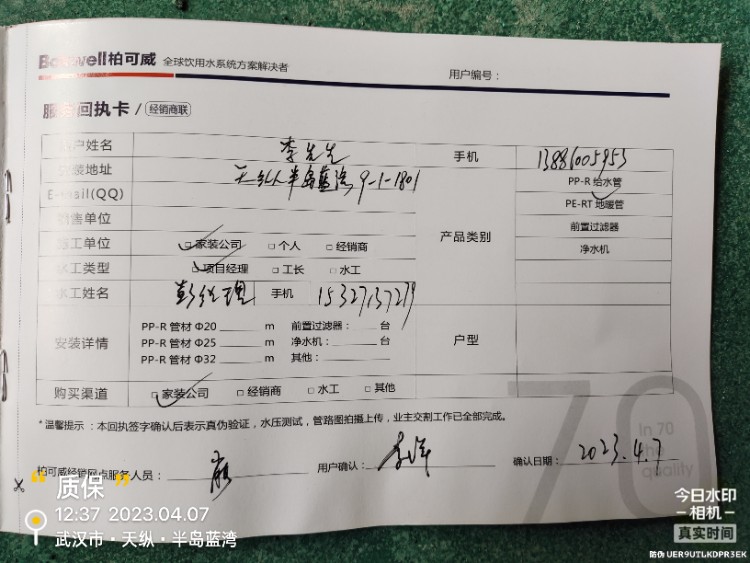 Boswell柏可威 全球饮用水系统方案解决者
用户编号：
服务回执卡 / 经销商联
客户姓名 李先生 手机 13886005953
安装地址 天纵半岛蓝湾 9-1-1801
E-mail(QQ)
销售单位
施工单位 □家装公司 □个人 □经销商
水工类型 □项目经理 □工长 □水工
水工姓名 彭经理 手机 15327137279
产品类别 PP-R 给水管
PE-RT 地暖管
前置过滤器
净水机
安装详情 PP-R 管材 Φ20 m 前置过滤器： 台
PP-R 管材 Φ25 m 净水机： 台
PP-R 管材 Φ32 m 其他：
户型
购买渠道 □家装公司 □经销商 □水工 □其他
*温馨提示：本回执签字确认后表示真伪验证，水压测试，管路图拍摄上传，业主交割工作已全部完成。
70
In 70
the
quality
柏可威经销网点服务人员：
用户确认： 李洋
确认日期： 2023.4.7
“质保”
12:37 2023.04.07
武汉市·天纵·半岛蓝湾
今日水印
-相机-
真实时间
防伪 UER9UTLKDPR3EK